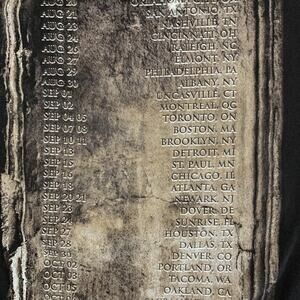 AUG 20
AUG 21 SAN ANTONIO, TX
AUG 23 NASHVILLE, TN
AUG 24 CINCINNATI, OH
AUG 26 RALEIGH, NC
AUG 27 ELMONT, NY
AUG 29 PHILADELPHIA, PA
AUG 30 ALBANY, NY
SEP 01 UNCASVILLE, CT
SEP 02 MONTREAL, QC
SEP 04 05 TORONTO, ON
SEP 07 08 BOSTON, MA
SEP 10 11 BROOKLYN, NY
SEP 13 DETROIT, MI
SEP 15 ST. PAUL, MN
SEP 16 CHICAGO, IL
SEP 18 ATLANTA, GA
SEP 20 21 NEWARK, NJ
SEP DOVER, DE
SEP SUNRISE, FL
SEP 27 HOUSTON, TX
SEP 28 DALLAS, TX
SEP 30 DENVER, CO
OCT 02 PORTLAND, OR
OCT 03 TACOMA, WA
OCT 05 OAKLAND, CA